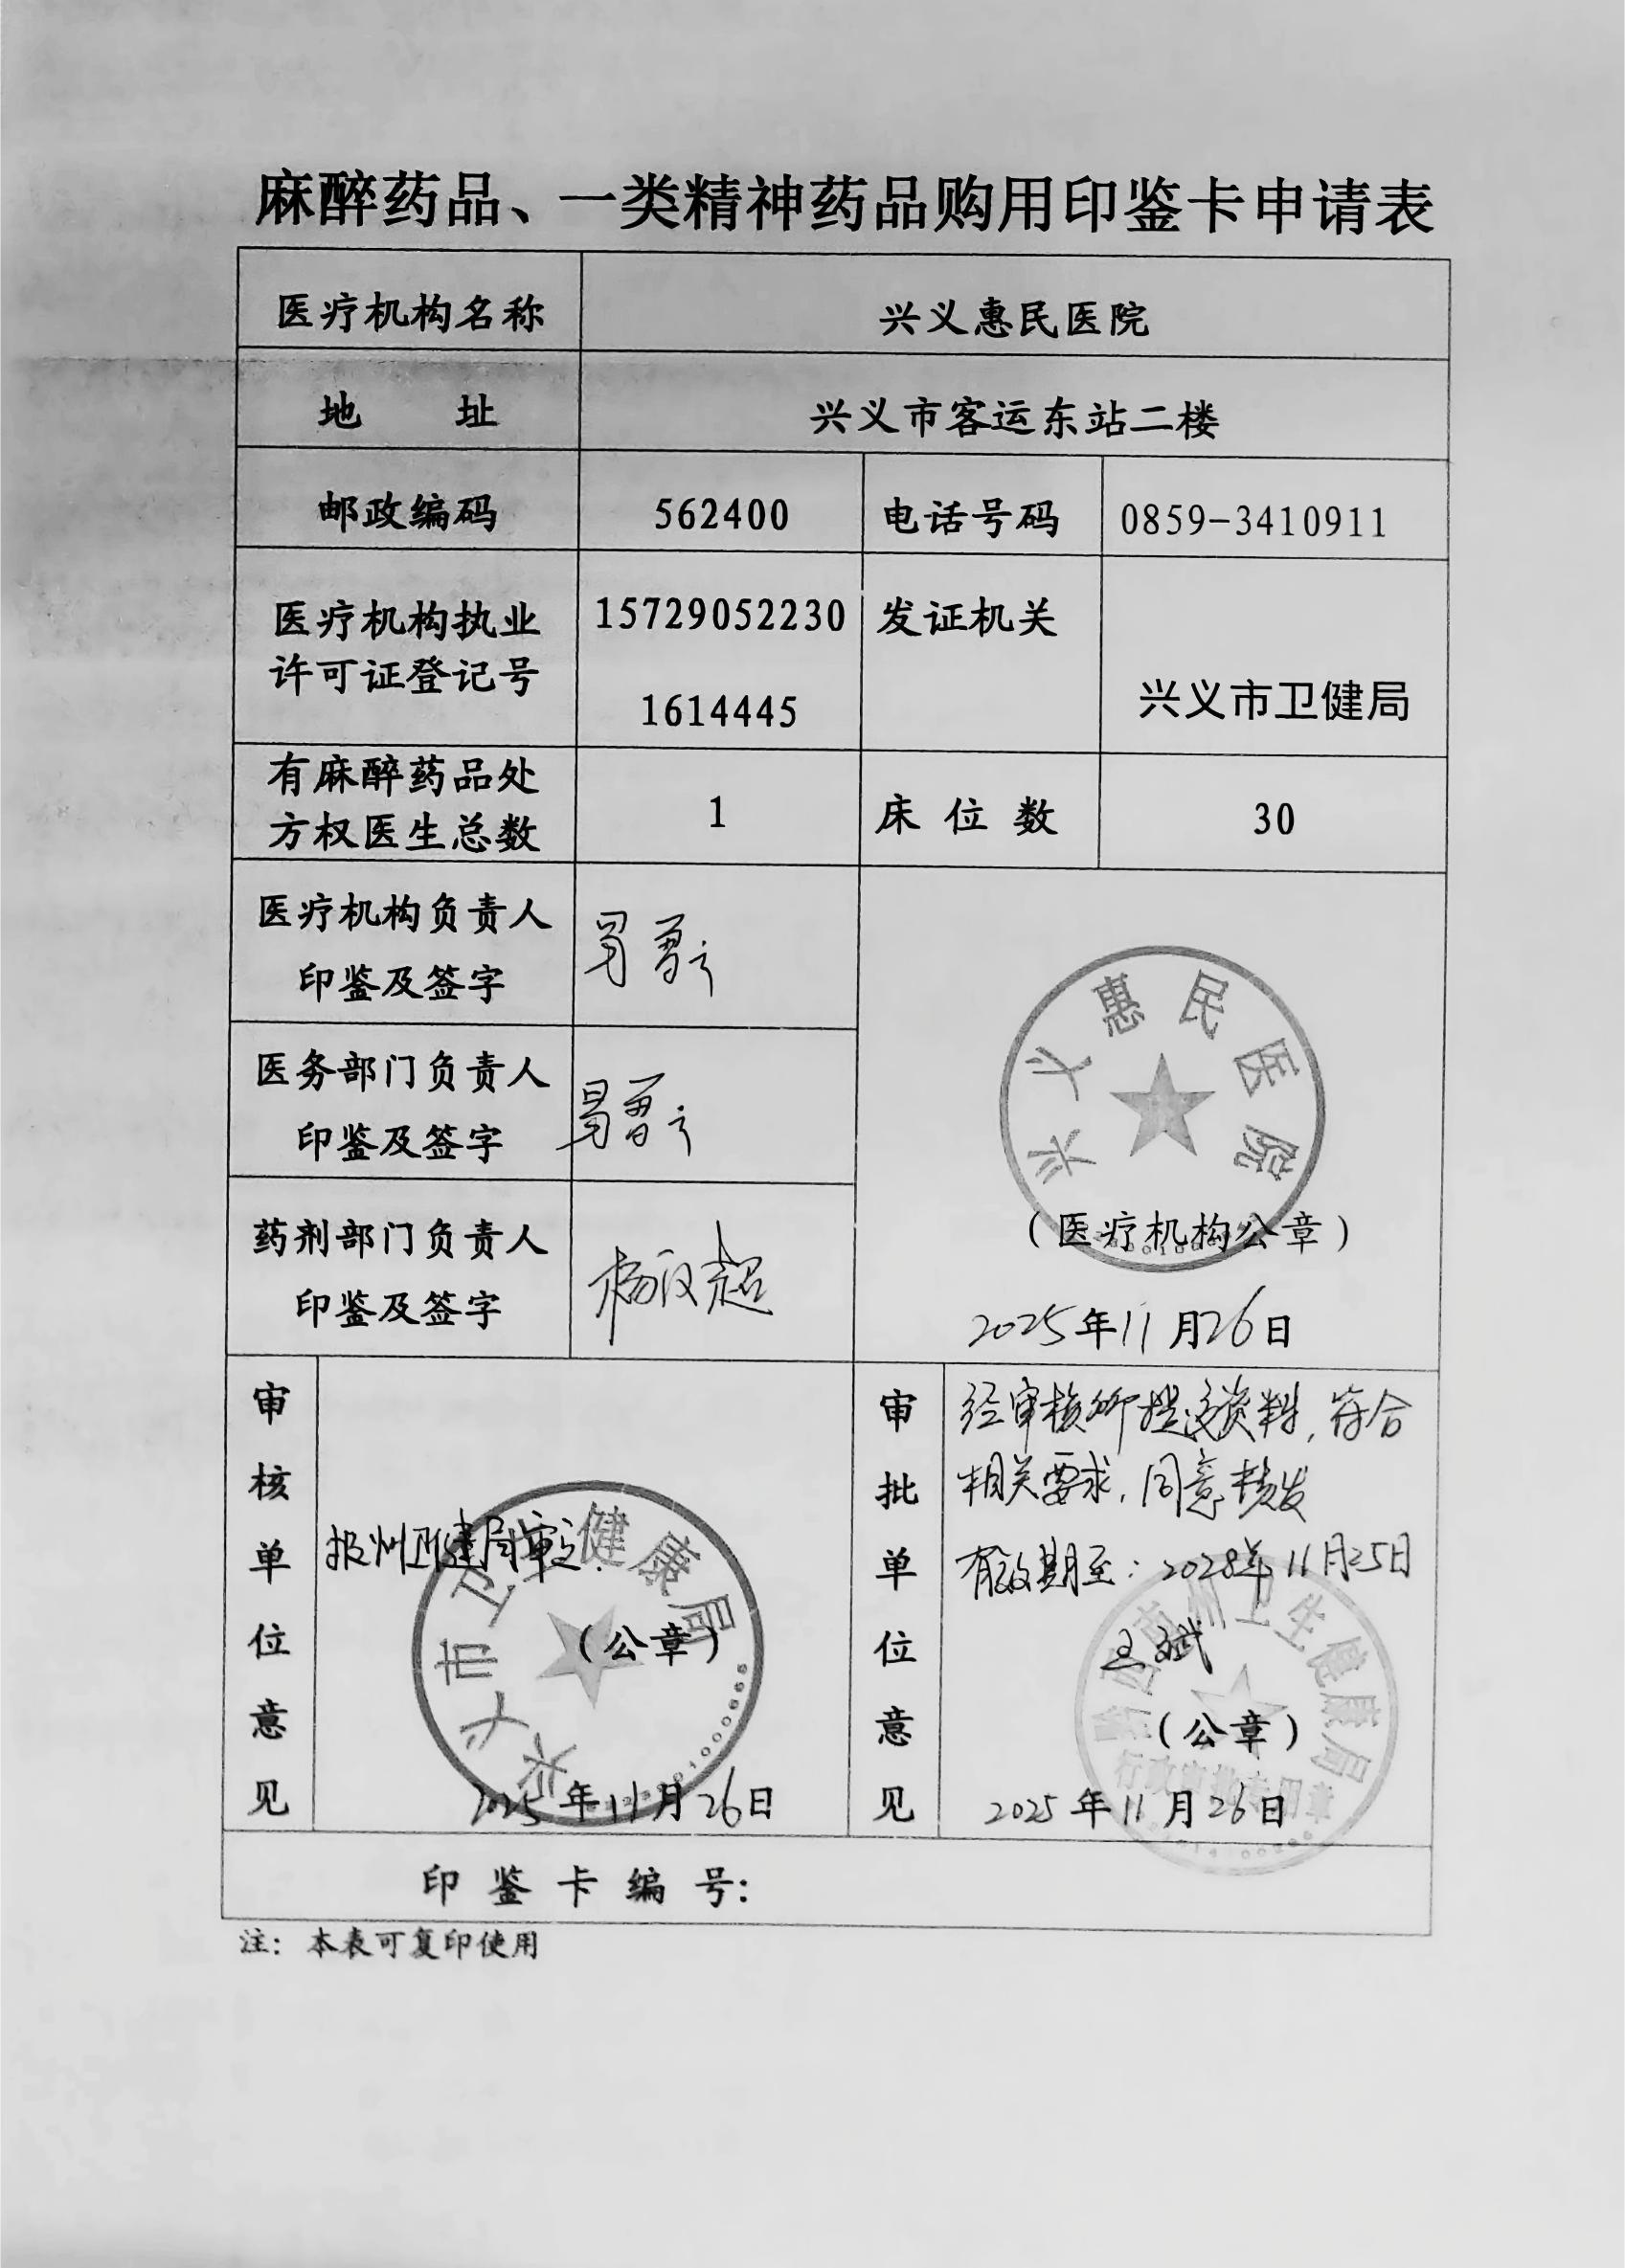 麻醉药品、一类精神药品购用印鉴卡申请表
医疗机构名称 兴义惠民医院
地 址 兴义市客运东站二楼
邮政编码 562400 电话号码 0859-3410911
医疗机构执业 15729052230 发证机关
许可证登记号 1614445 兴义市卫健局
有麻醉药品处
方权医生总数 1 床位数 30
医疗机构负责人
印鉴及签字
医务部门负责人
印鉴及签字
药剂部门负责人
印鉴及签字 杨汉超
兴义惠民医院
(医疗机构公章)
2025年11月26日
审核单位意见
报州卫健局审定.
兴义市卫生健康局
(公章)
2025年11月26日
审批单位意见
经审核所提交资料,符合
相关要求,同意核发
有效期至:2028年11月25日
王斌
黔西南州卫生健康局
行政审批专用章
(公章)
2025年11月26日
印鉴卡编号:
注:本表可复印使用